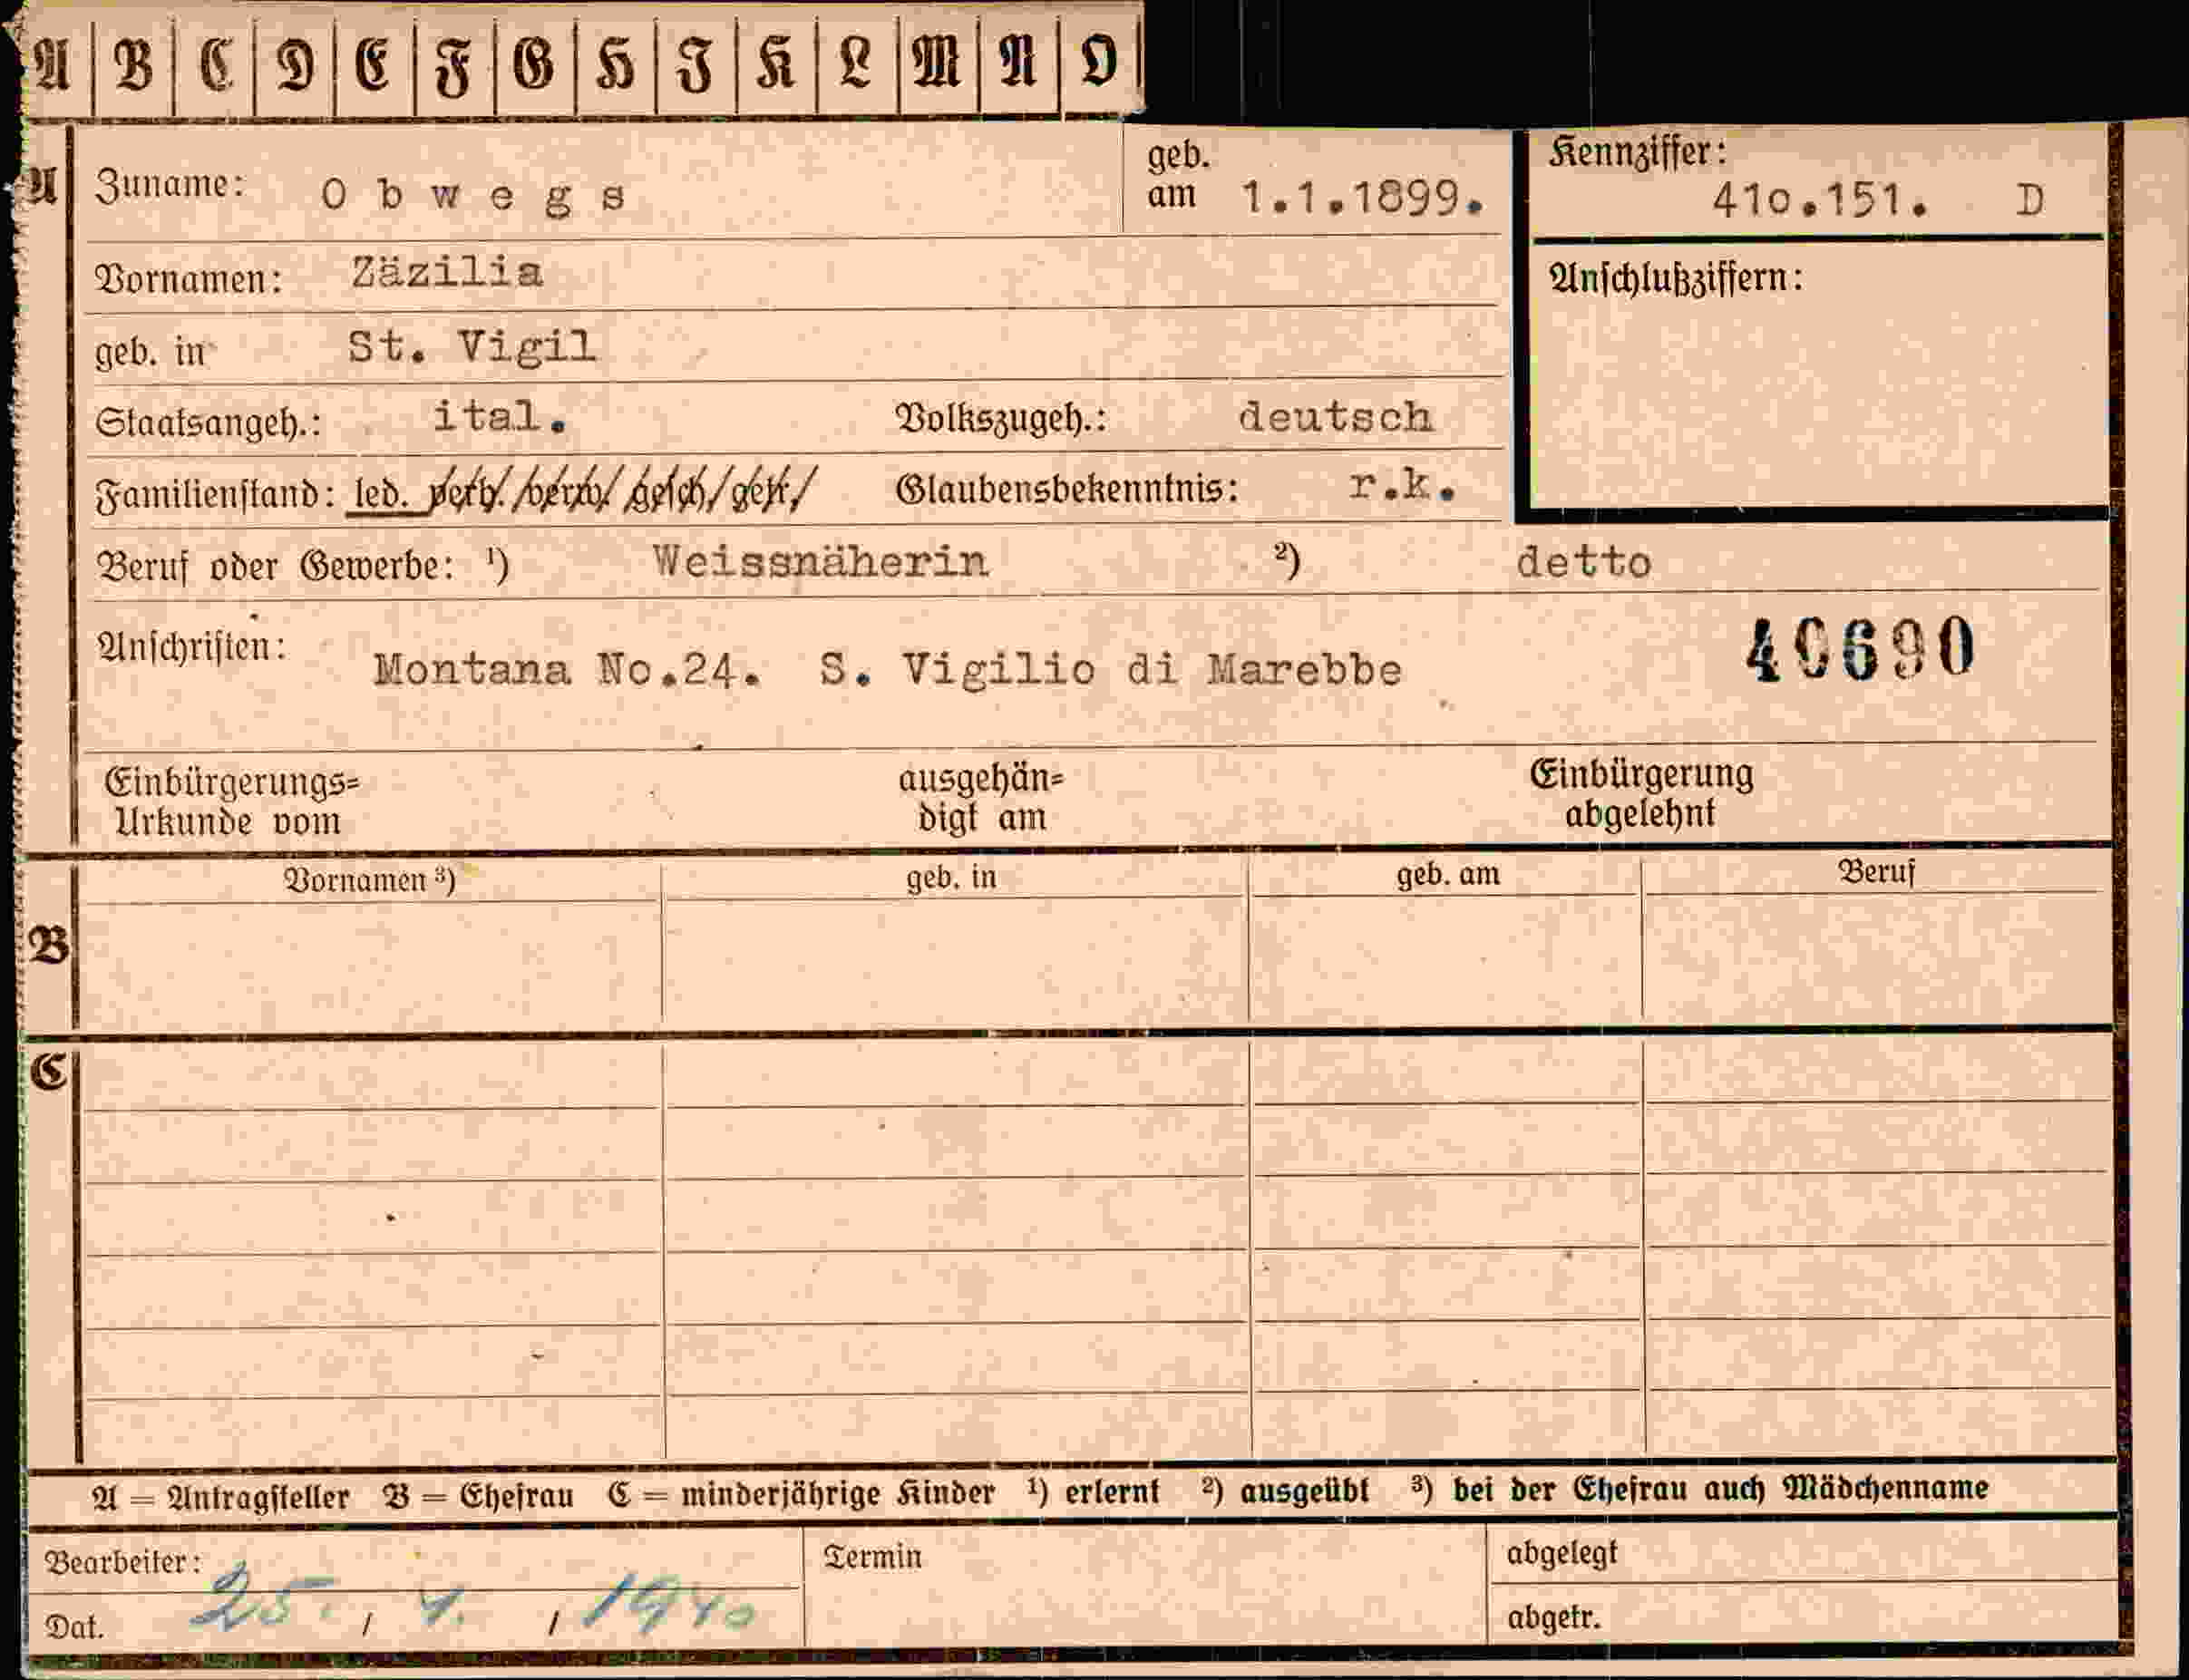 A B C D E F G H I K L M N O
A
Zuname: Obwegs geb. am 1.1.1899. Kennziffer: 410.151. D
Vornamen: Zäzilia Anschlußziffern:
geb. in St. Vigil
Staatsangeh.: ital. Volkszugeh.: deutsch
Familienstand: led. verh./verw./gesch/getr./ Glaubensbekenntnis: r.k.
Beruf oder Gewerbe: ¹) Weissnäherin ²) detto
Anschriften: Montana No.24. S. Vigilio di Marebbe 40690
Einbürgerungs= ausgehän= Einbürgerung
Urkunde vom digt am abgelehnt
B
Vornamen ³) geb. in geb. am Beruf
C
A = Antragsteller B = Ehefrau C = minderjährige Kinder ¹) erlernt ²) ausgeübt ³) bei der Ehefrau auch Mädchenname
Bearbeiter: Termin abgelegt
Dat. 25. / 4. / 1940 abgetr.